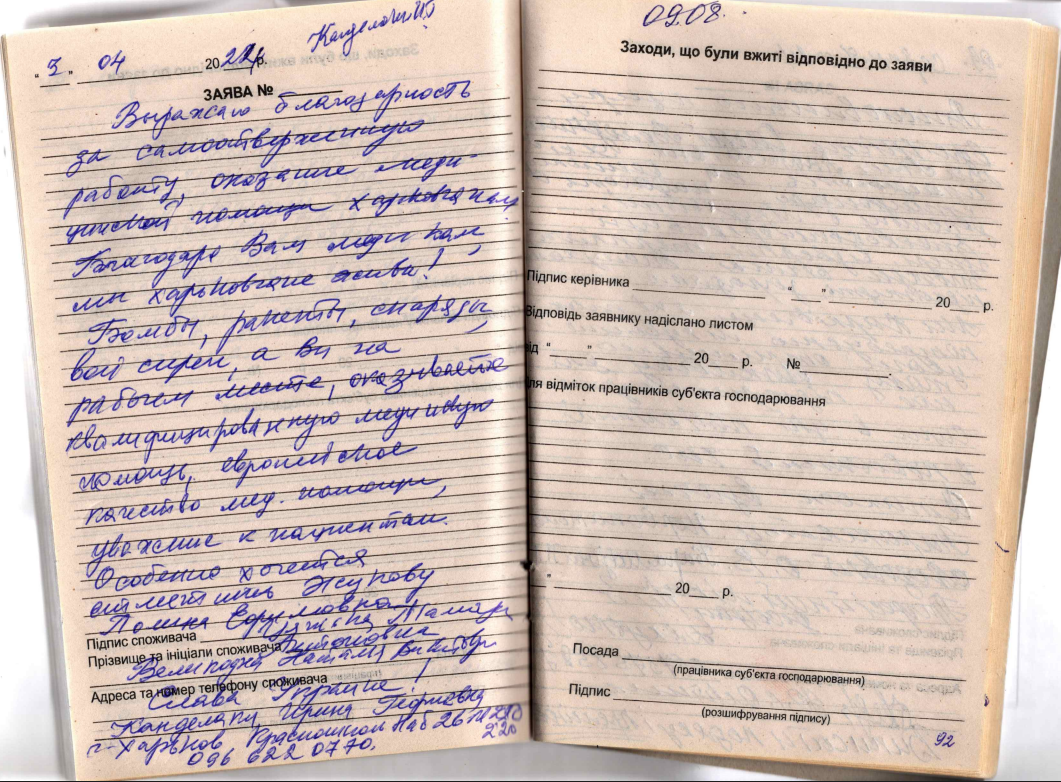 "3" 04 2022 р.
ЗАЯВА №
Выражаю благодарность
за самоотверженную
работу, оказание меди-
цинской помощи харьковчанам!
Благодаря Вам медикам,
мы харьковчане живы!
Бомбы, ракеты, снаряды,
вой сирен, а Вы на
рабочем месте, оказываете
квалифицированную медицинскую
помощь, европейское
качество мед. помощи,
уважение к пациентам.
Особенно хочется
отметить Жукову
Полина Ефимовна,
Підпис споживача
Прізвище та ініціали споживача
Наталия
Адреса та номер телефону споживача
Слава Україне!
Ирина
г. Харьков Красношкол наб 26
096 622 0770.
09.08.
Заходи, що були вжиті відповідно до заяви
Підпис керівника " " 20 р.
Відповідь заявнику надіслано листом
від " " 20 р. № .
Для відміток працівників суб'єкта господарювання
" 20 р.
Посада
(працівника суб'єкта господарювання)
Підпис
(розшифрування підпису)
92